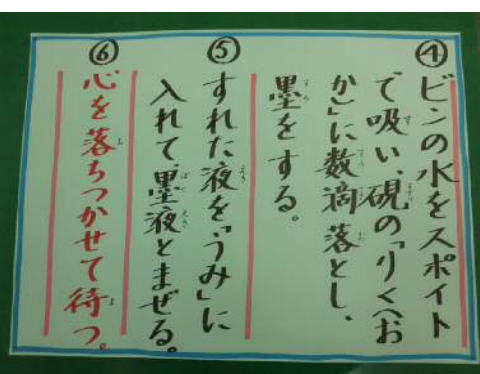 ④ビンの水をスポイト
で吸い、硯の「りく(お
か)」に数滴落とし、
墨をする。
⑤すれた液を「うみ」に
入れて、墨液とまぜる。
⑥心を落ちつかせて待つ。